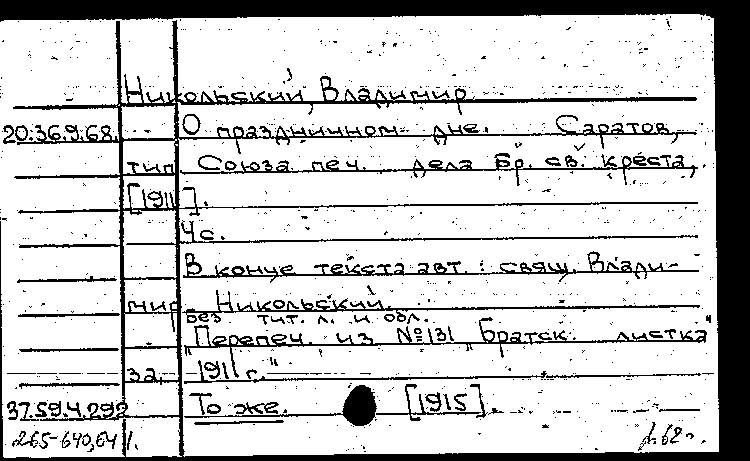 Никольский, Владимир
20.36.9.68. О праздничном дне. Саратов,
тип. Союза печ. дела Бр. св. креста,
[1911].
4 с.
В конце текста авт.: свящ. Влади-
мир Никольский.
Без тит. л. и обл.
"Перепеч. из №131 "Братск. листка"
за 1911 г."
37.59.4.292 То же. [1915].
265-640,64